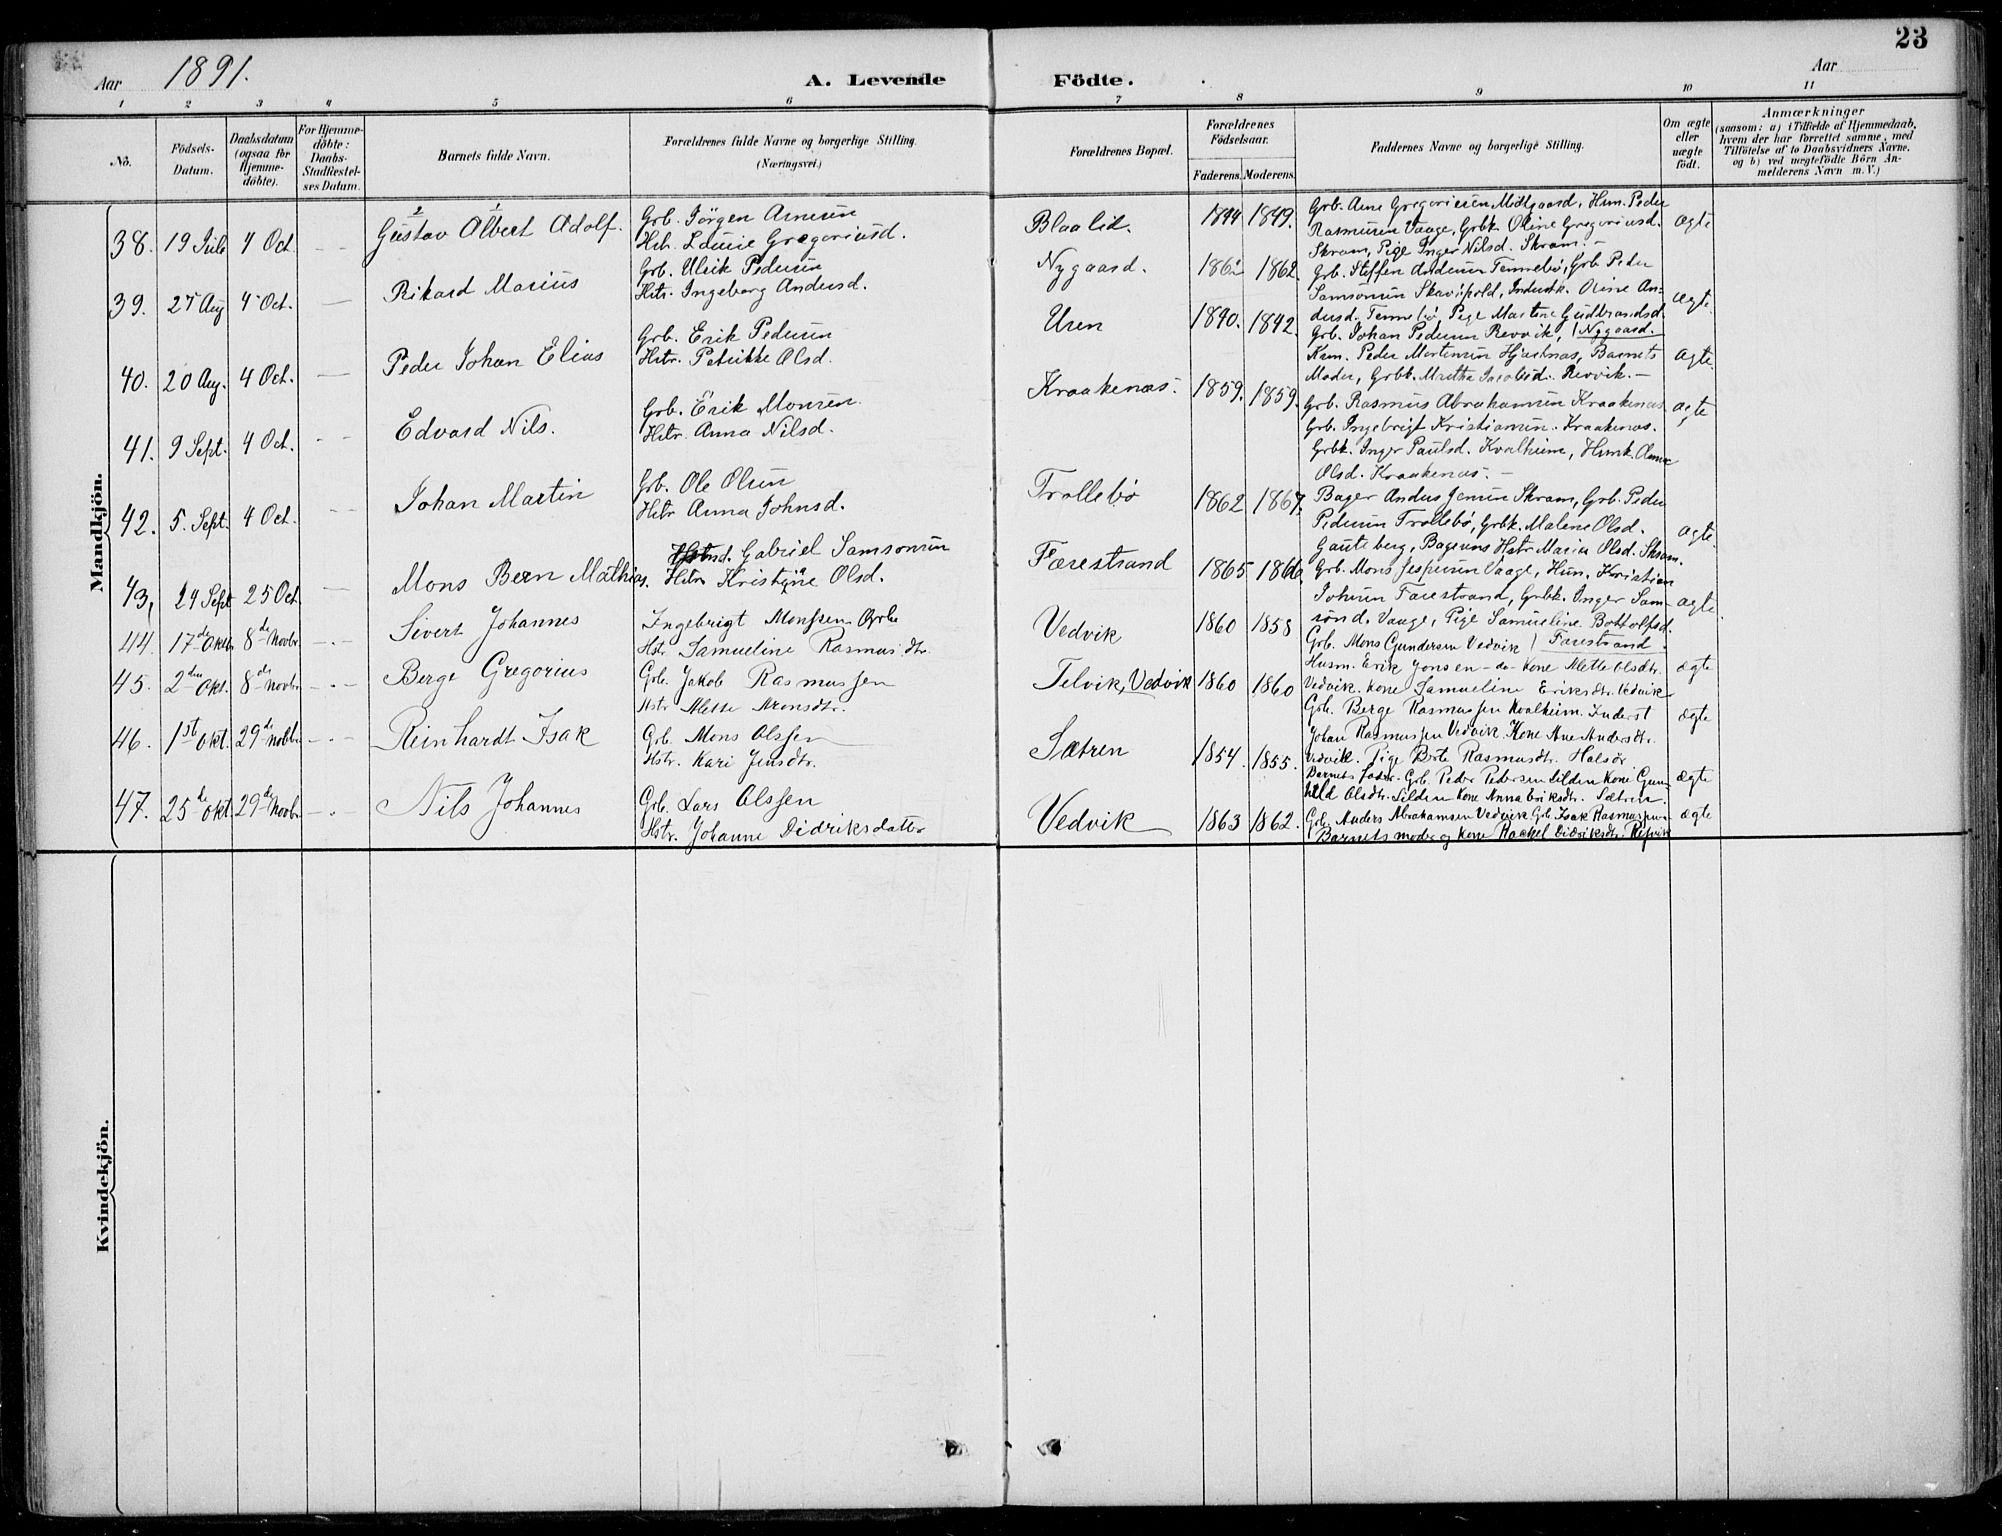 23
Aar 1891.
A. Levende Födte.
Aar
1 2 3 4 5 6 7 8 9 10 11
No.
Födsels-Datum.
Daabsdatum (ogsaa for Hjemme-döbte).
For Hjemme-döbte: Daabs-Stadfæstel-ses Datum.
Barnets fulde Navn.
Forældrenes fulde Navne og borgerlige Stilling. (Næringsvei.)
Forældrenes Bopæl.
Forældrenes Födselsaar.
Faderens. Moderens.
Faddernes Navne og borgerlige Stilling.
Om ægte eller uægte födt.
Anmærkninger
(saasom: a) i Tilfælde af Hjemmedaab, hvem der har forrettet samme, med Tilföielse af to Daabsvidners Navne. og b) ved uægtefödte Börn An-melderens Navn m. V.)
Mandkjön.
38. 19 Juli 4 Oct. Gustav Albert Adolf.
2 1
Grb. Jörgen Arnesen
Hstr. Louise Gregoriusd.
Blaalid. 1844 1849. ægte
Grb. Arne Gregoriusen Midtgaard, Hum. Peder
Rasmusen Vaage, Grbk. Oline Gregoriusd.
Skram, Pige Inger Nilsd. Skram. -
39. 4 Oct. Rikard Marius
Grb. Ulrik Pedersen
Hstr. Ingeborg Andersd.
Nygaard. 1862 ægte
Grb. Steffen Andersen Tennebö, Grb. Peder
dersd. Tennebö, Pige Martene Gudbrandsd.
Nygaard.
40. 20 Aug. 4 Oct. Peder Johan Elias
Grb. Erik Pedersen
Hstr. Petrikke Olsd.
Uren 1840. 1842. ægte.
Grb. Johan Pedersen Revvik,
Moder, Grbk. Martha Jacobsd. Revvik. -
41. 9 Sept. 4 Oct. Edvard Nils.
Grb. Erik Monsen.
Hstr. Anna Nilsd.
Kraakenæs. 1859. 1859. ægte
Grb. Rasmus Abrahamsen Kraakenæs.
Grb. Ingebrigt Kristiansen. Kraakenæs.
Grbk. Inger Paulsd. Kvalheim,
Olsd. Kraakenæs. -
42. 5. Sept. 4 Oct. Johan Martin
Grb. Ole Olsen
Hstr Anna Johnsd.
Trollebö 1862 1867. ægte.
Bager Anders Jensen Skram, Grb. Peder
Pedersen Trollebö, Grbk. Malene Olsd.
Gauteberg, Bagerens Hstr Marie Olsd. Skram.
43, 24 Sept 25 Oct. Mons Bern Mathias.
Gabriel Samsonsen
Hstr Kristine Olsd.
Færestrand 1865 ægte
Grb. Mons Jespersen Vaage, Hum. Kristian
Johnsen Færestrand, Grbk. Inger Sam-
sönd. Vaage, Pige Samueline Bottolfsd.
Færestrand.
44. 17de Oktbr 8de Novbr. Sivert Johannes
Ingebrigt Monssen
Hstr Samueline Rasmusdtr.
Vedvik 1860 1858 ægte
Grb. Mons Gundersen Vedvik
Husm. Erik Jonsen - do - Kone Mette Olsdtr.
Vedvik. Kone Samueline Eriksdtr. Vedvik
45. 2den Okt. 8de Novbr Berge Gregorius
Grb. Jakob Rasmussen
Hstr Mette Aronsdtr.
Telvik, Vedvik 1860 1860 ægte
Grb. Berge Rasmussen Kvalheim. Inderst
Johan Rasmussen Vedvik. Kone Ane Andersdtr.
Vedvik. Pige Berte Rasmusdtr. Halsör
46. 1st Okt. 29de Novbr. Reinhardt Isak
Grb. Mons Olssen
Hstr. Kari Jensdtr.
Sætren 1854. 1855. ægte
Barnets Fader. Grb. Peder Pedersen Silden Kone Gun-
hild Olsdtr. Silden Kone Anna Eriksdtr. Sætren.
47. 25de Okt. 29de Novbr. Nils Johannes
Grb. Lars Olssen
Hstr. Johanne Didriksdatter
Vedvik 1863 1862. ægte
Grb. Anders Abrahamsen Vedvik Grb. Isak Rasmussen
Barnets moder og Kone Rachel Didriksdtr. Refvik
Kvindekjön.